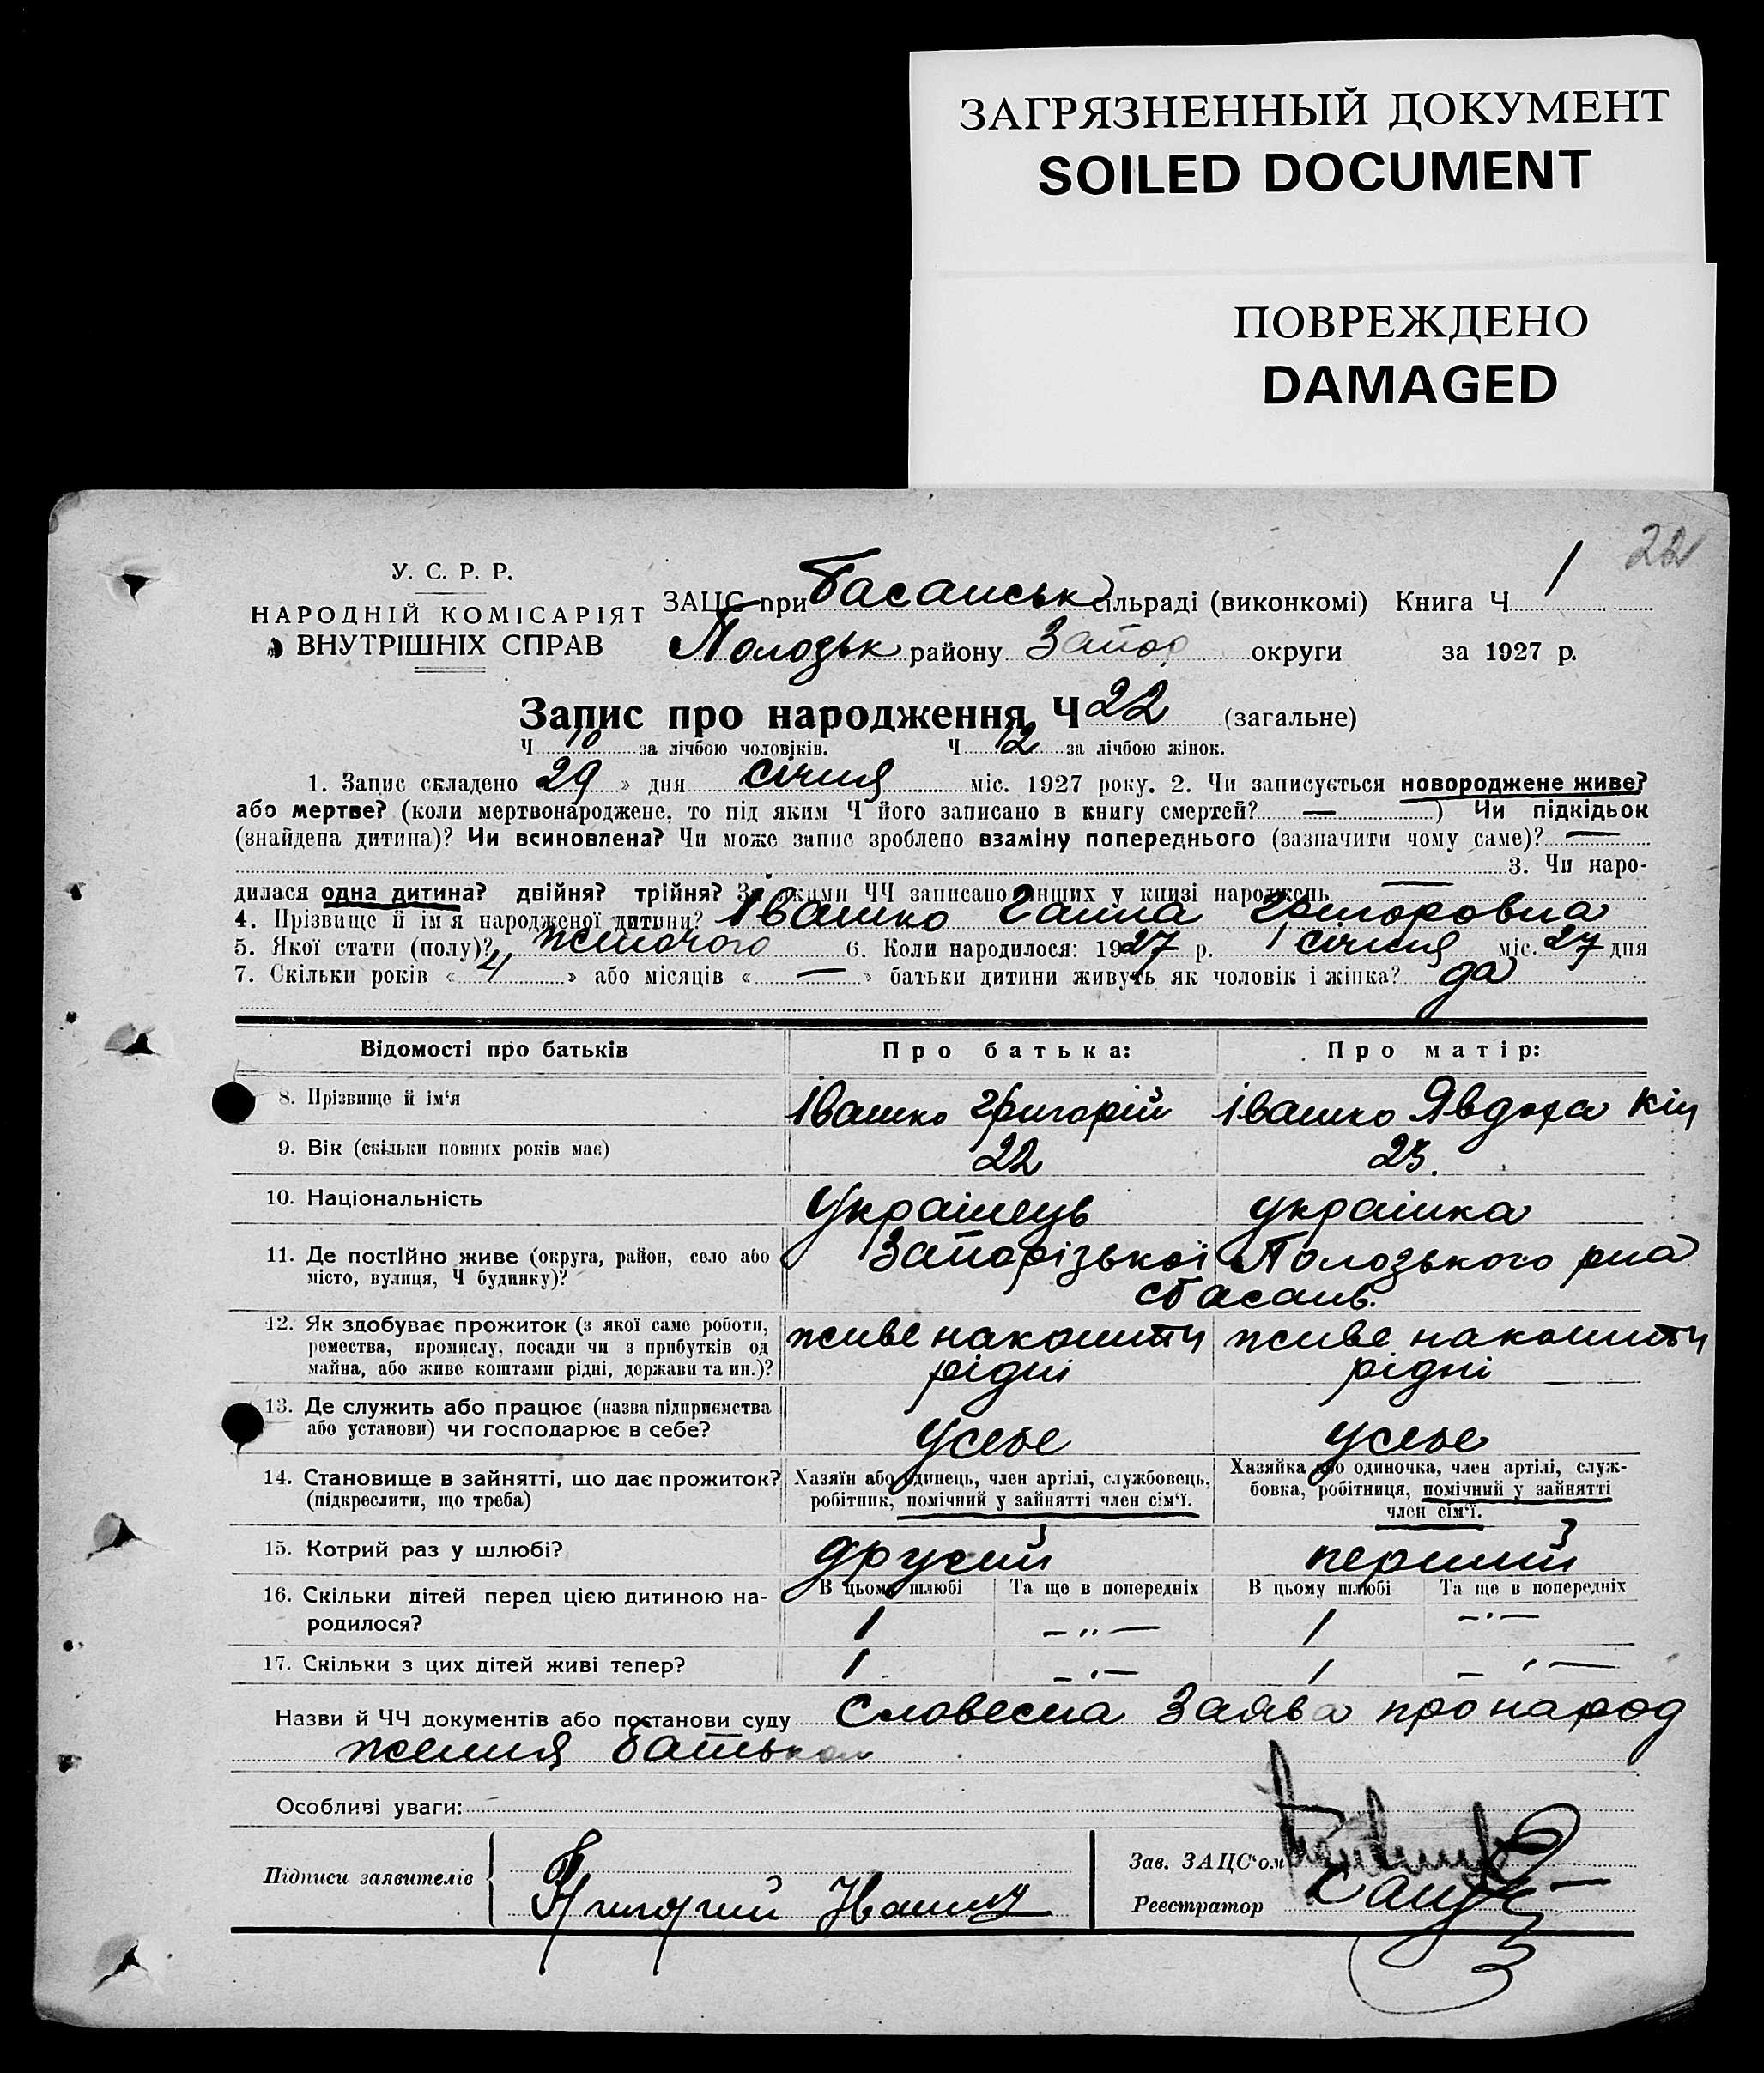 ЗАГРЯЗНЕННЫЙ ДОКУМЕНТ
SOILED DOCUMENT
ПОВРЕЖДЕНО
DAMAGED
22
У. С. Р. Р.
НАРОДНІЙ КОМІСАРІЯТ
ВНУТРІШНІХ СПРАВ
ЗАЦС при Басанськ сільраді (виконкомі) Книга Ч 1
Пологзьк району Запор округи за 1927 р.
Запис про народження Ч 22 (загальне)
Ч 10 за лічбою чоловіків. Ч 12 за лічбою жінок.
1. Запис складено 29 » дня січня міс. 1927 року. 2. Чи записується новороджене живе?
або мертве? (коли мертвонароджене, то під яким Ч його записано в книгу смертей? — ) Чи підкідьок
(знайдена дитина)? Чи всиновлена? Чи може запис зроблено взаміну попереднього (зазначити чому саме)? —
3. Чи наро-
дилася одна дитина? двійня? трійня? За якими ЧЧ записано инших у книзі народжень —
4. Прізвище й ім'я народженої дитини? Івашко Ганна Григоровна
5. Якої стати (полу)? жіночого 6. Коли народилося: 1927 р. січня міс. 27 дня
7. Скільки років « 4 » або місяців « — » батьки дитини живуть як чоловік і жінка? да
Відомості про батьків Про батька: Про матір:
8. Прізвище й ім'я Івашко Григорій Івашко Явдоха
9. Вік (скільки повних років має) 22 23.
10. Національність Українець українка
11. Де постійно живе (округа, район, село або Запорізької Пологзького рна
місто, вулиця, Ч будинку)? с Басань.
12. Як здобуває прожиток (з якої саме роботи, живе на кошти живе на кошти
ремества, промислу, посади чи з прибутків од рідні рідні
майна, або живе коштами рідні, держави та ин.)?
13. Де служить або працює (назва підприємства
або установи) чи господарює в себе? усебе усебе
14. Становище в зайнятті, що дає прожиток? Хазяїн або одинець, член артілі, службовець, Хазяйка або одиночка, член артілі, служ-
(підкреслити, що треба) робітник, помічний у зайнятті член сім'ї. бовка, робітниця, помічний у зайнятті
член сім'ї.
15. Котрий раз у шлюбі? другий перший
16. Скільки дітей перед цією дитиною на- В цьому шлюбі Та ще в попередніх В цьому шлюбі Та ще в попередніх
родилося? 1 — „ — 1 — „ —
17. Скільки з цих дітей живі тепер? 1 — „ — 1 — „ —
Назви й ЧЧ документів або постанови суду Словесна Заява про народ
ження батьком
Особливі уваги:
Підписи заявителів Григорий Ивашко
Зав. ЗАЦС'ом
Реєстратор